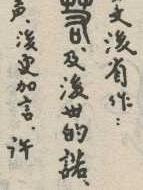 文後有作：
司，及後世的詻、
声，後更加言，许